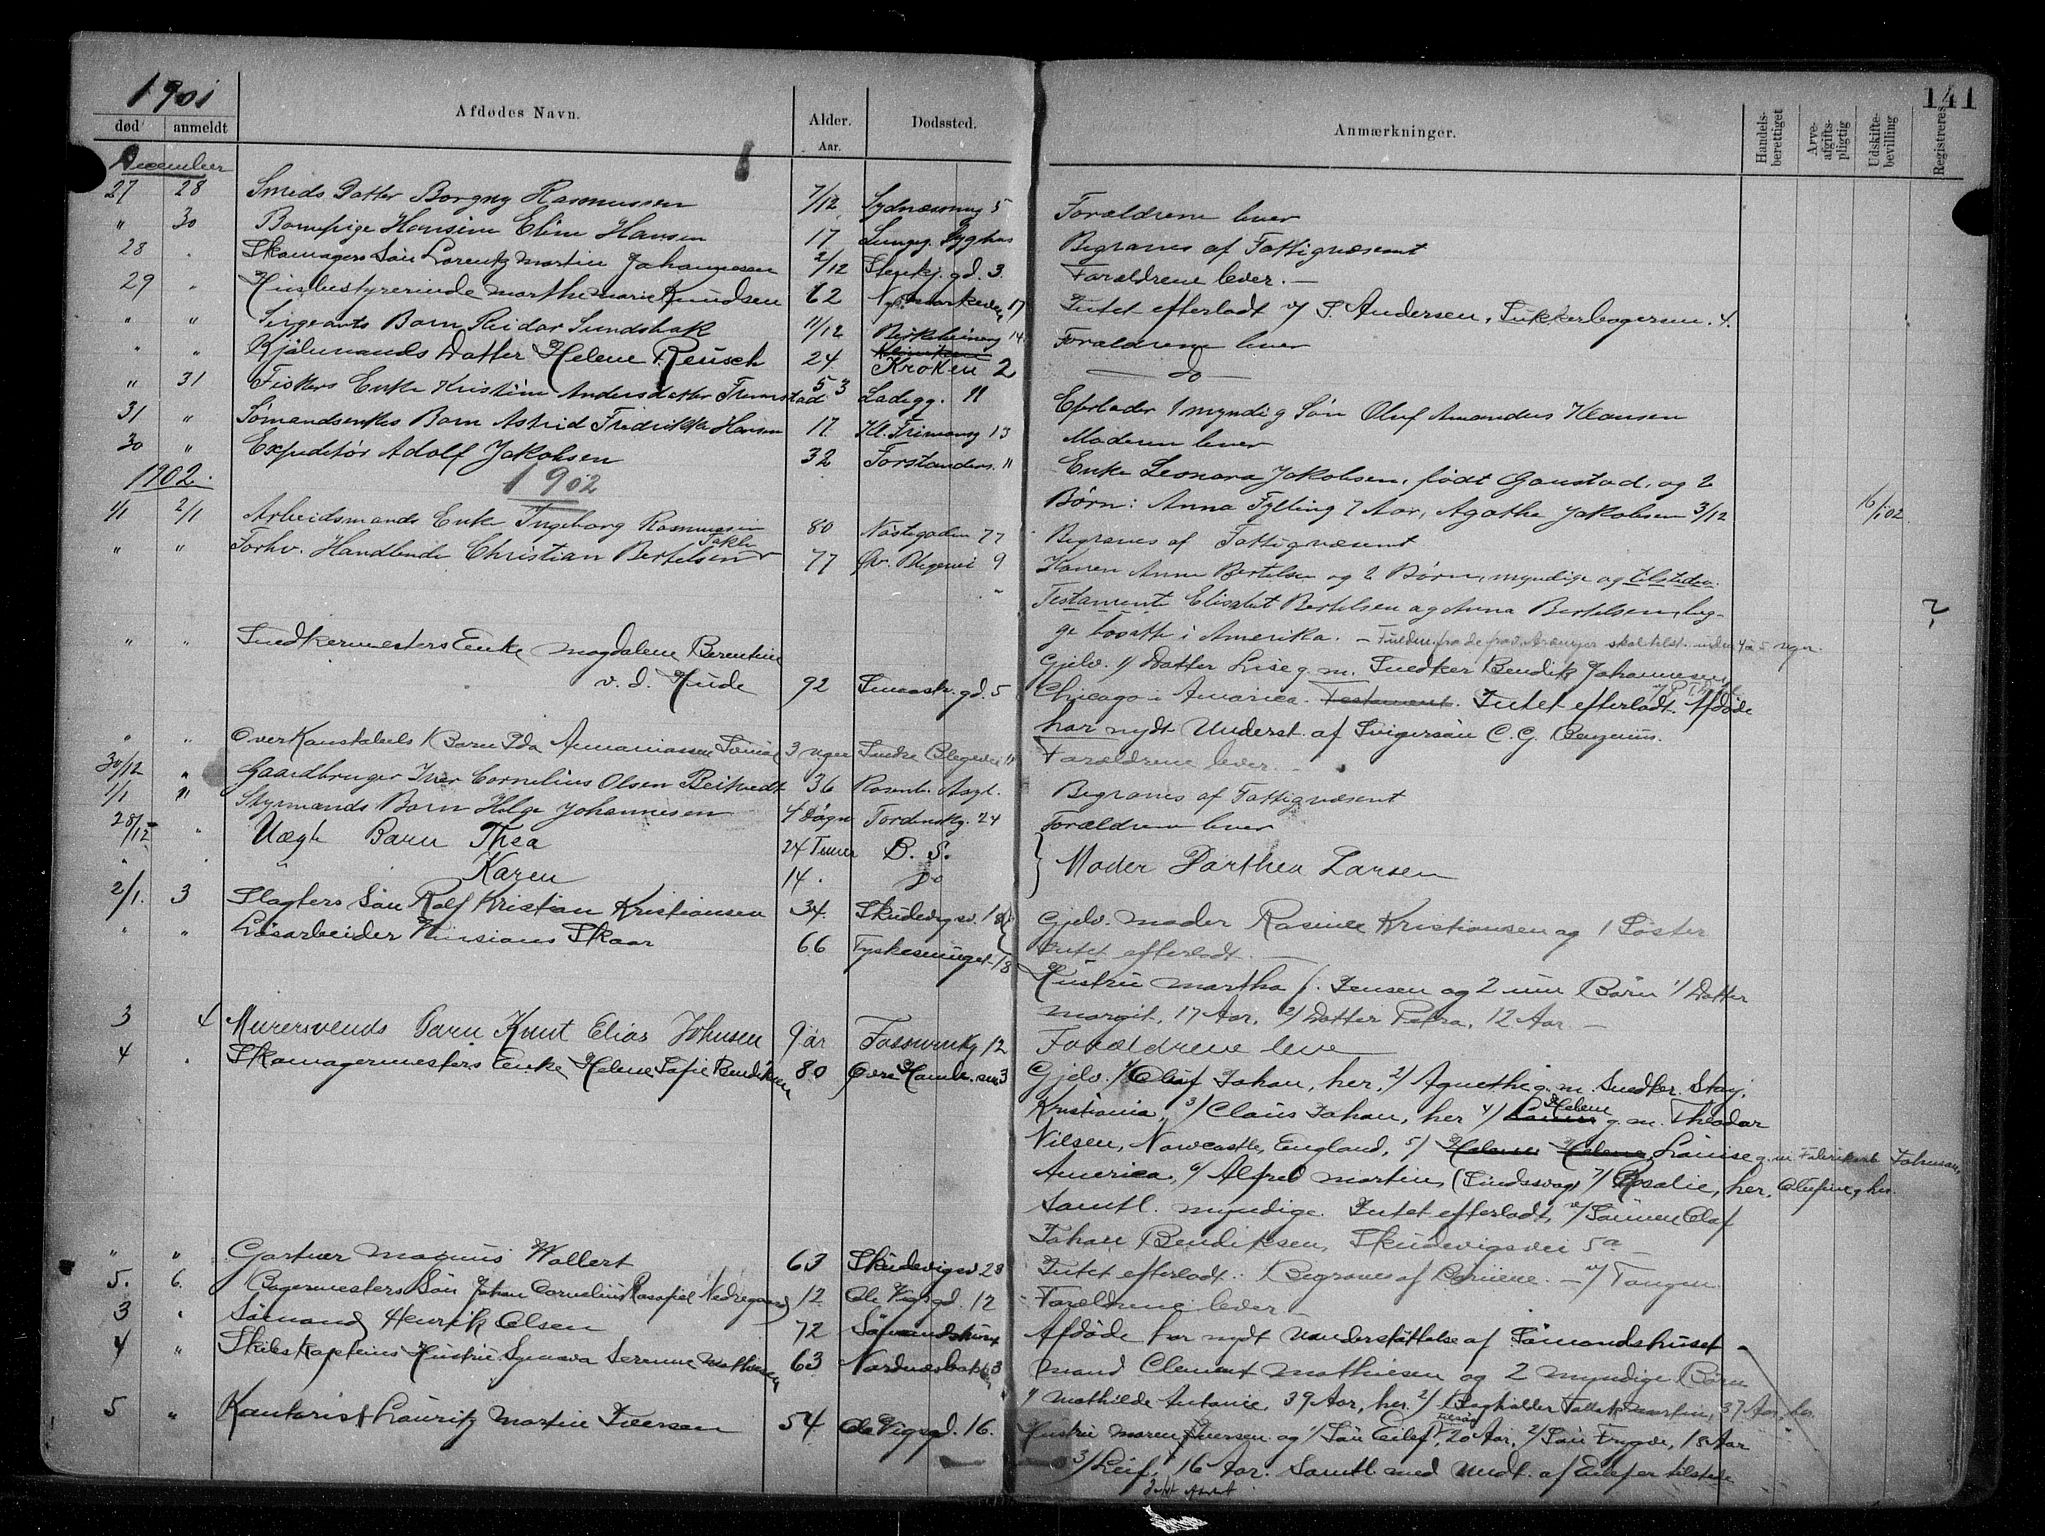 1901
141
død anmeldt Afdødes Navn. Alder. Aar. Dødssted. Anmærkninger. Handels-berettiget Arve-afgifts-pligtig Udskifte-bevilling Registreres
December
27 28 Smeds Datter Borgny Rasmussen 7/12 Sydnæssmug 5 Forældrene lever
" 30 Barnepige Hansine Eline Hansen 17 Lungeg. Syghus Begraves af Fattigvæsenet
28 " Skomagers Søn Lorentz Martin Johannesen 2/12 Stenkj. gd. 3. Forældrene lever. —
29 " Husbestyrerinde Marthe Marie Knudsen 62 Nymarkeven 17 Intet efterladt v/ S. Andersen, Sukkerbagersm. 4.
" " Sergeants Barn Reidar Sundsbak 11/12 14. Forældrene lever
" " Kjølmands Datter Helene Reusch 24 Kroken 2 — do —
" 31 Fiskers Enke Kristine Andersdatter 53 Ladegg. 11 Efterlader 1 myndig Søn Oluf Amandus Hansen
31 " Sømandsenkes Barn Astrid Fredrikke Hansen 17 Kl. 13 Moderen lever
30 " Expeditør Adolf Jakobsen 32 Forstanders. 11 Enke Leonora Jakobsen, født Gaustad, og 2
1902. 1902 Børn: Anna Fylling 7 Aar, Agathe Jakobsen 3/12 16/1 02
1/1 2/1 Arbeidsmands Enke Ingeborg Rasmussen 80 Nøstegaden 77 Begraves af Fattigvæsenet
" " Forhv. Handlende Christian Bertelsen 77 Øv. Blegevei 9 Konen Anne Bertelsen og 2 Børn, myndige og tilstede.
Testamente Elisabet Bertelsen og Anna Bertelsen, beg-
ge bosatte i Amerika. —
?
" " Snedkermesters Enke Magdalene Berentine
v. d. Hude 92 gd. 5 Gjelv. 1/ Datter Lise g. m. Snedker Bendik Johannesen
Chicago i America. Testament. Intet efterladt. Afdøde
har nydt Underst. af Svigersøn C. G.
" " Overkonstabels Barn Ida Annaniassen 3 uger Indre Blegevei 11 Forældrene lever. —
30/12 " Gaardbruger Iver Cornelius Olsen Beitvedt 36 Rosenb. Asyl. Begraves af Fattigvæsenet
1/1 " Styrmands Barn Helge Johannesen 4 Døgn Tordenskj. 24 Forældrene lever
28/12 " Uægte Barn Thea 24 Timer D. S. Moder Dorthea Larsen
" " Karen 14 " Do
2/1. 3 Slagters Søn Rolf Kristian Kristiansen 34. Skudevigsv. 18 Gjelv. Moder Rasmine Kristiansen og 1 Søster
" " Løsarbeider Skaar 66 Tyskesmuget 18 Intet efterladt. —
Hustru Martha f. Jensen og 2 um Børn 1/ Datter
Margit, 17 Aar, 2/ Datter Petra, 12 Aar —
3 4 Murersvends Barn Knut Elias Johnsen 9 ar Fosswinkg 12 Forældrene leve
4 " Skomagermesters Enke Helene Sofie Bendiksen 80 Øvre Hamb. sm 3 Gjelv. 1/ Olaf Johan, her, 2/ Agnethe g. m. Snedker Stoy,
Kristiania, 3/ Claus Johan, her 4/ Helene g. m. Theodor
Nilsen, Newcastle, England, 5/ Helene Louise g. m. Fabrikarb. Johnsen,
America, 6/ Alfred Martin, 7/ Rosalie, her,
Samtl. myndige. Intet efterladt, v/ Sønnen Olaf
Johan Bendiksen, Skudevigsvei 5a —
" " Gartner Magnus Wallert 63 Skudevigsv 28 Intet efterladt. Begraves af Børnene. — v/ Tangen
5. 6. Bagermesters Søn Johan Cornelius Nedregaard 12 Ole Vigsgd. 12 Forældrene lever —
3 " Sømand Henrik Olsen 72 Sømandshuset Afdøde har nydt Understøttelse af Sømandshuset
4 " Skibskapteins Hustru Synneva Serenne Mathiesen 63 Nordnæsbakken 3 Mand Clement Mathiesen og 2 myndige Børn
1/ Mathilde Antonie, 39 Aar, her 2/ Bogholder Martin, 37 Aar, her.
5 " Kontorist Lauritz Martin Iversen 54 Ole Vigsgd. 16. Hustru Maren Iversen og 1/ Søn Eilef, 20 Aar, 2/ Søn Trygve, 18 Aar
3/ Leif, 16 Aar. Samtl. med Undt. af Eilef er tilstede